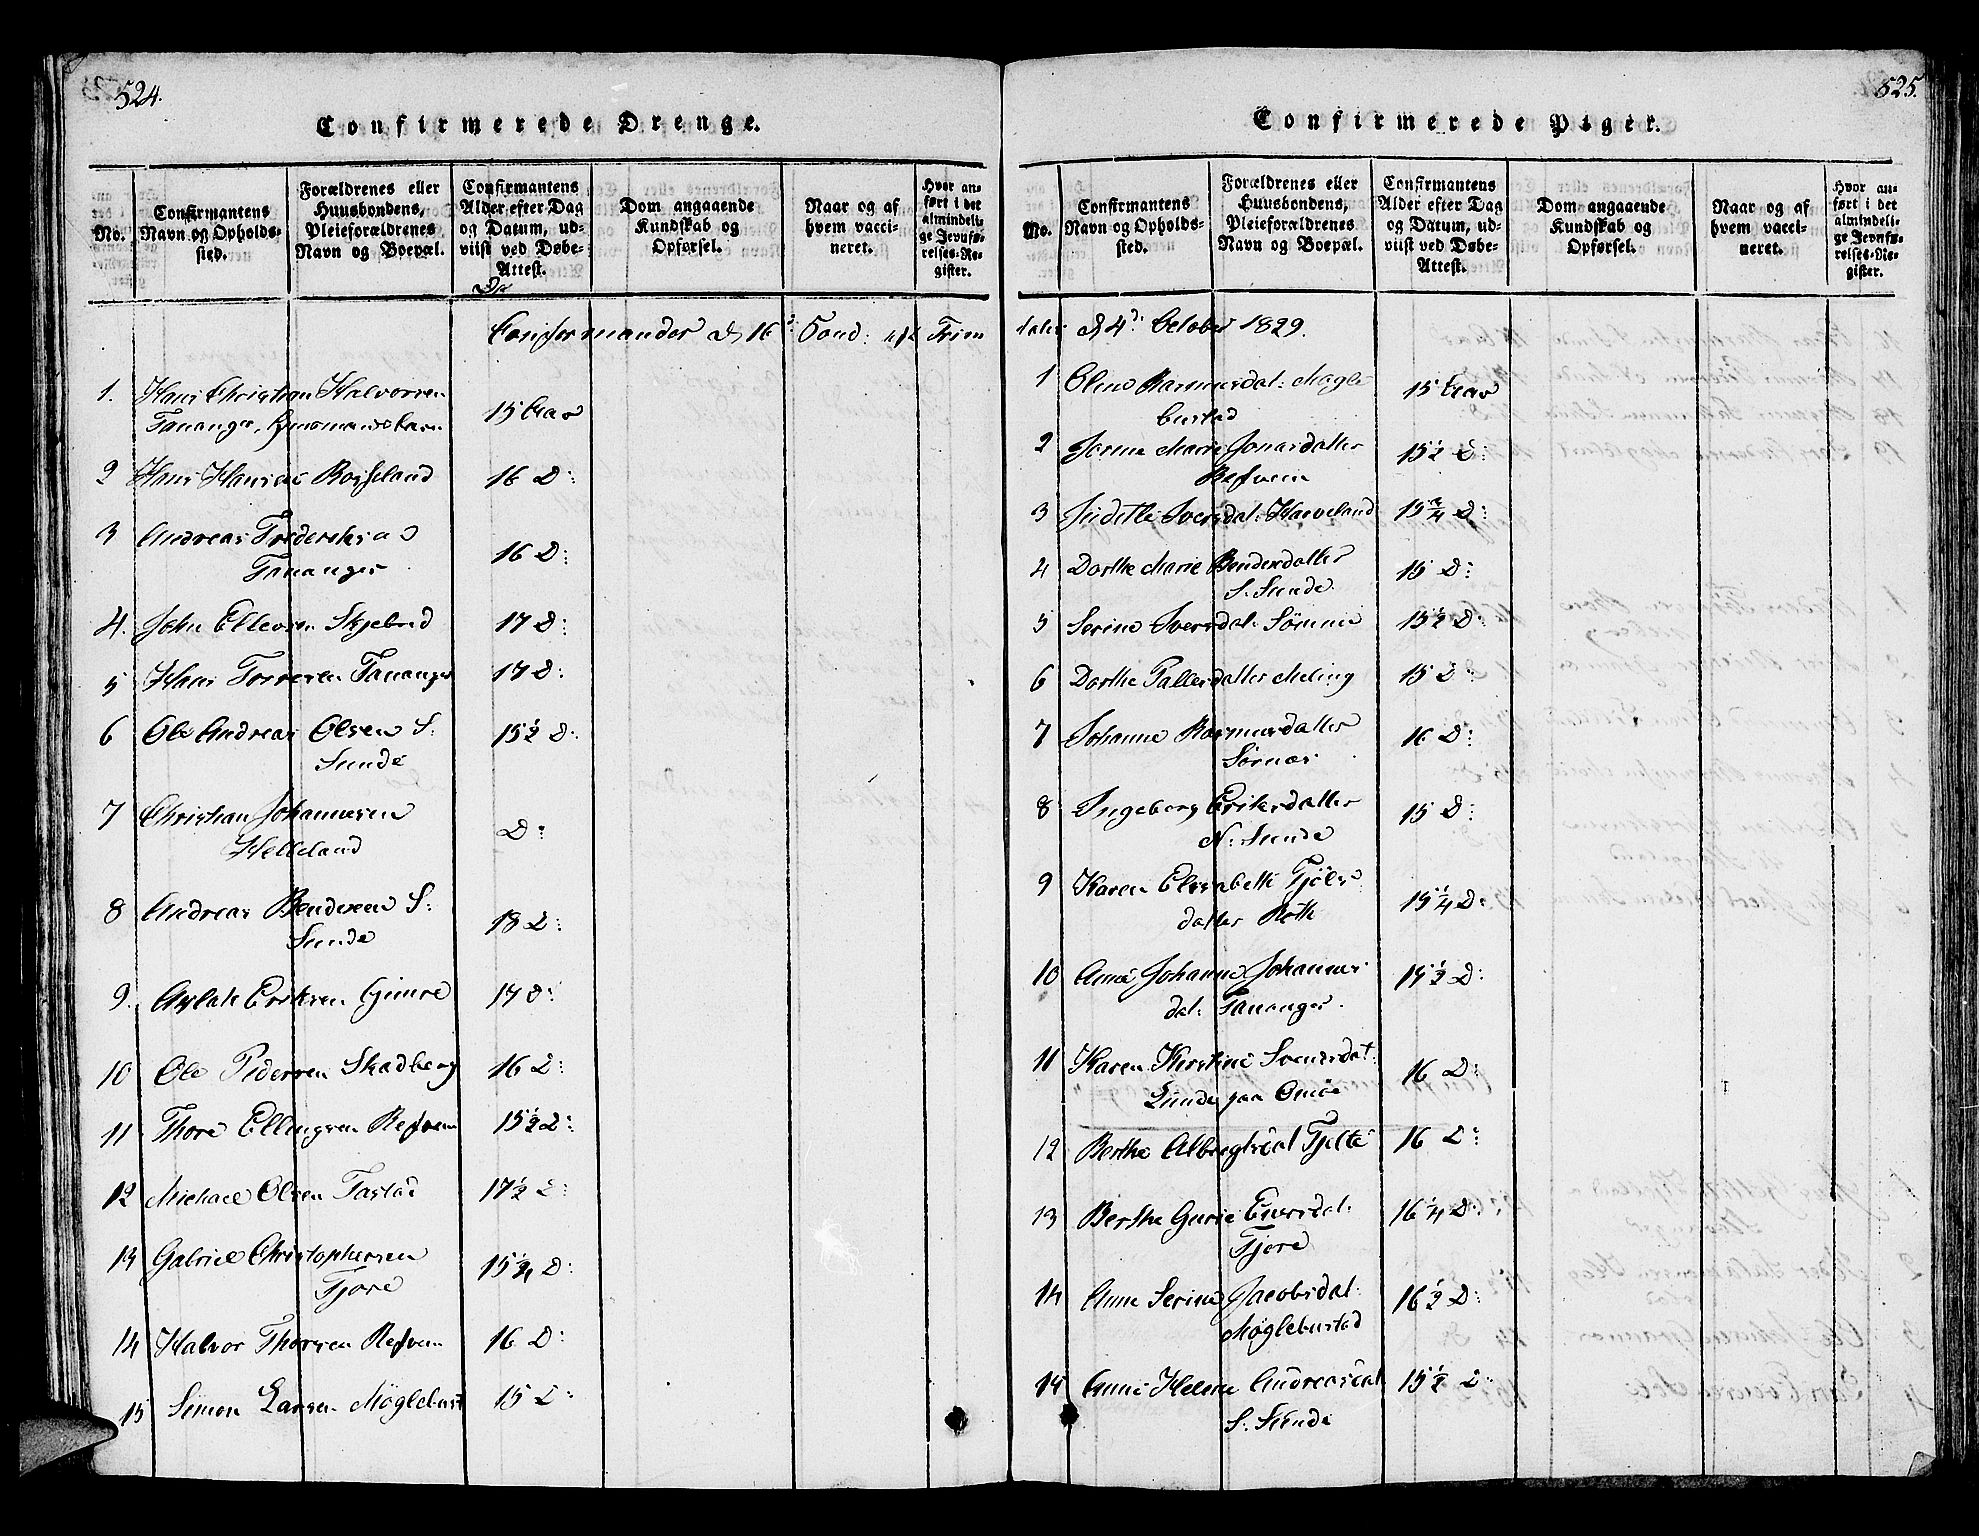 524.
Confirmerede Drenge.
No.
Confirmantens Navn og Opholds-sted.
Forældrenes eller Huusbondens, Pleieforældrenes Navn og Boepæl.
Confirmantens Alder efter Dag og Datum, ud-viist ved Døbe-Attest.
Dom angaaende Kundskab og Opførsel.
Naar og af hvem vacci-neret.
Hvor an-ført i det almindeli-ge Jevnfø-relses-Re-gister.
De
Confirmander d. 16 Sønd: eft Trini
1. Hans Christian Halvorsen 15 Aar
Tananger, Huusmandsbarn
2 Hans Hansen Rosseland 16 D:
3 Andreas Frederiksen 16 D:
Tananger
4. John Ellevsen Skjebred 17 D:
5 Hans Torresen Tananger 17 D:
6 Ole Andreas Olsen S: 15½ D:
Sunde
7 Christian Johannesen D:
Helleland
8 Andreas Bendixen S: 18 D:
Sunde
9. Aslak Eriksen Gimre 17 D:
10 Ole Pedersen Skadberg 16 D:
11 Thore Ellingsen Refvem 15½ D:
12 Michael Olsen Tastad 17½ D:
13 Gabriel Christophersen 15¾ D:
Tjore
14 Halvor Thorsen Refvem 16 D:
15 Simon Larsen Møglebust 15 D:
525.
Confirmerede Piger.
No.
Confirmantens Navn og Opholds-sted.
Forældrenes eller Huusbondens, Pleieforældrenes Navn og Boepæl.
Confirmantens Alder efter Dag og Datum, ud-viist ved Døbe-Attest.
Dom angaaende Kundskab og Opførsel.
Naar og af hvem vacci-neret.
Hvor an-ført i det almindeli-ge Jevnfø-relses-Re-gister.
tatis d. 4d: October 1829.
1 Oline Rasmusdal: Møgle 15 Aar
bustad
2 Jonne Marie Jonasdatter 15½ D:
Refvem
3 Sidetle Sversdal: Haveland 15¾ D:
4 Dorthe Marie Bendixdatter 15 D:
S. Sunde
5 Serine Sversdal: Sømme 15½ D:
6 Dorthe Pallesdatter Meling 15 D:
7 Johanne Rasmusdatter 16 D:
Sørnæs
8 Ingeborg Eriksdatter 15 D:
N: Sunde
9 Karen Elisabeth Tjøls 15¼ D:
datter Roth
10 Anne Johanne Johannes 15½ D:
dal: Tananger.
11 Karen Kirstine Svensdat: 16 D:
Lunde paa Omøe
12 Berthe Albregtsdal Tjelte 16 D:
13 Berthe Gurie Eversdal: 16¼ D:
Tjore
14 Anne Serine Jacobsdal: 16½ D:
Møglebustad
15 Anne Helene Andreasdal 15½ D:
S. Sunde